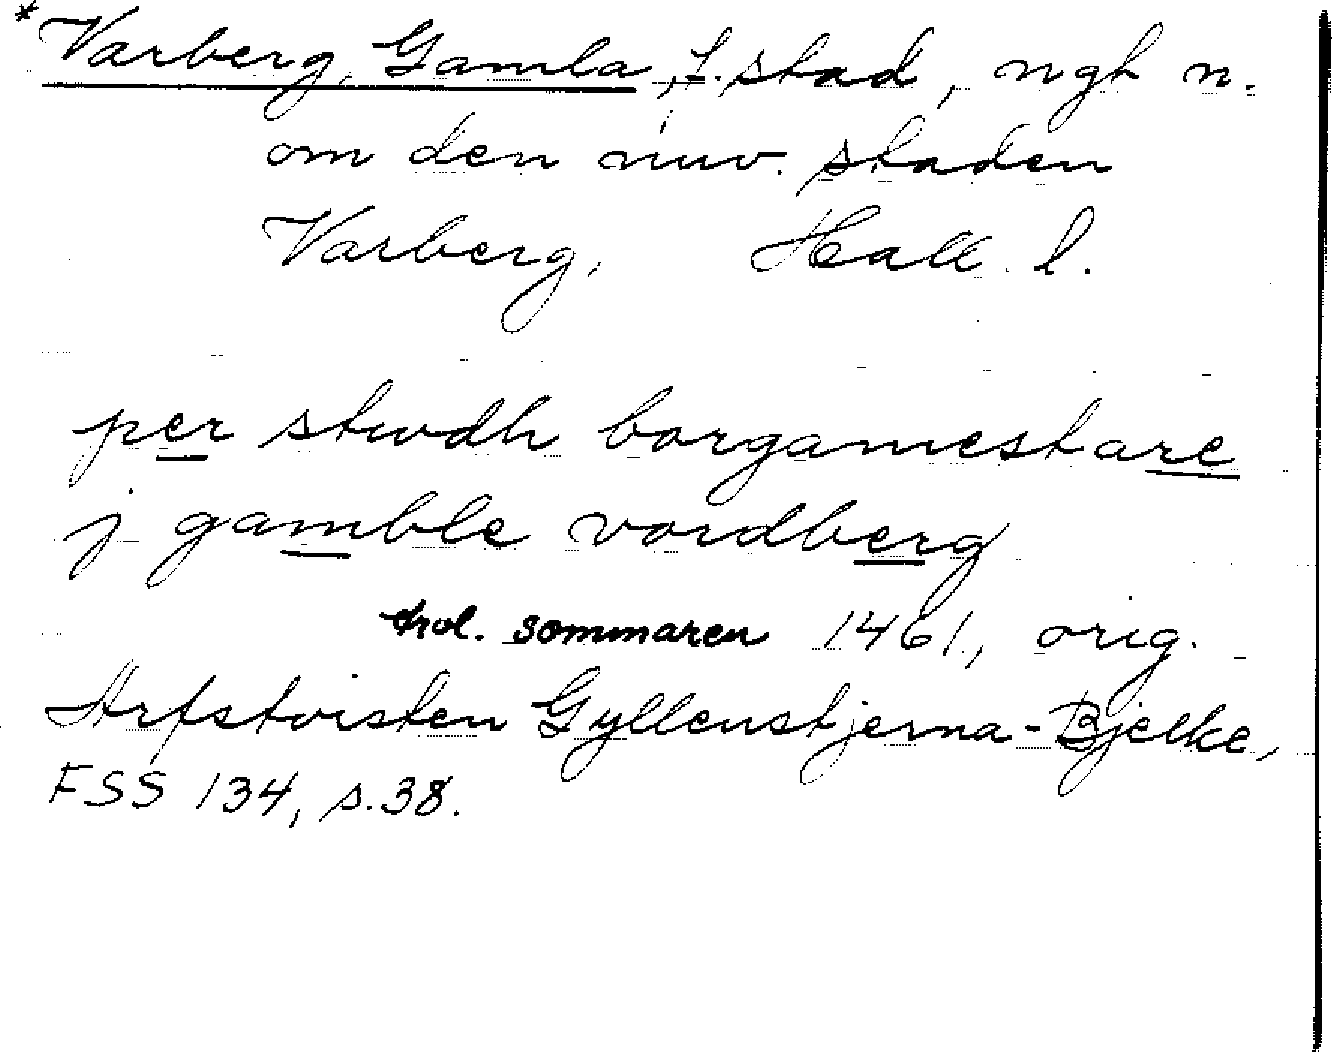 *Varberg, Gamla, f. stad, ngt n.
om den nuv. staden
Varberg, Hall. l.
per stwdh borgamestare
j gamble vardberg
trol. sommaren 1461, orig.
Arfstvisten Gyllenstjerna-Bjelke,
FSS 134, s.38.